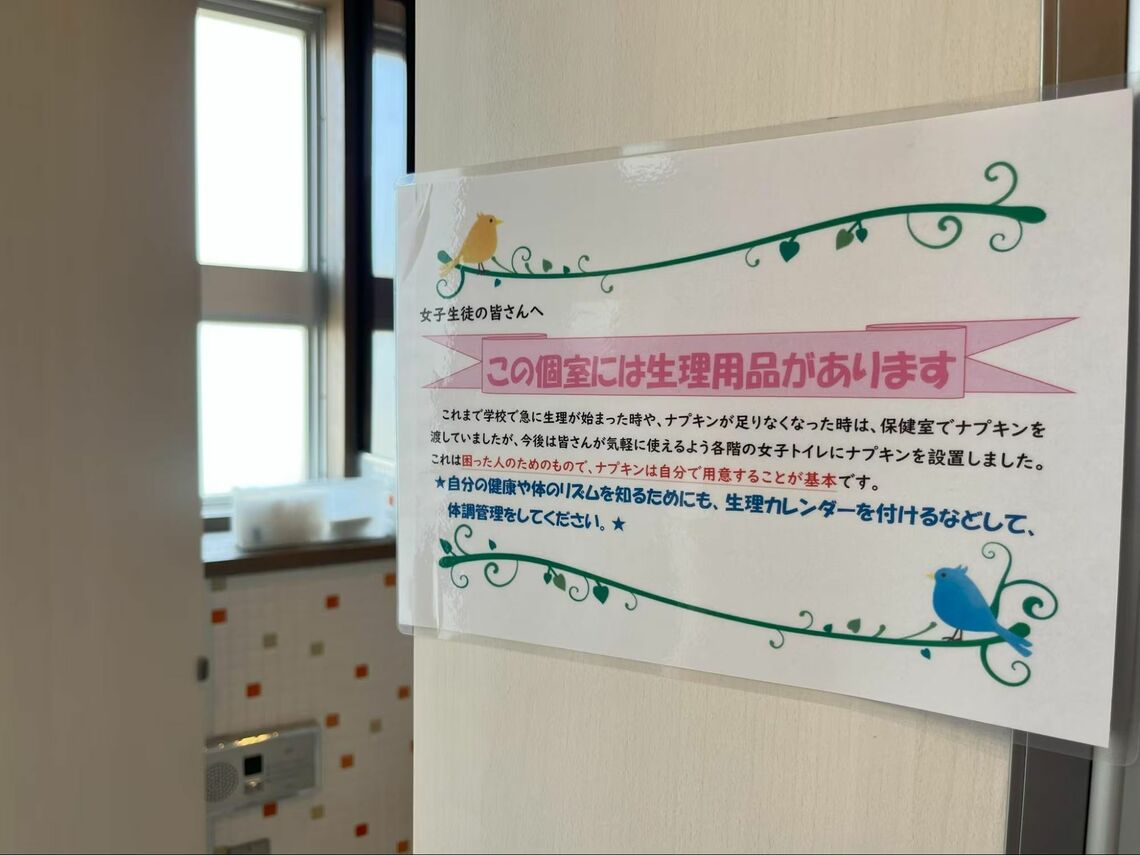 女子生徒の皆さんへ
この個室には生理用品があります
これまで学校で急に生理が始まった時や、ナプキンが足りなくなった時は、保健室でナプキンを
渡していましたが、今後は皆さんが気軽に使えるよう各階の女子トイレにナプキンを設置しました。
これは困った人のためのもので、ナプキンは自分で用意することが基本です。
★自分の健康や体のリズムを知るためにも、生理カレンダーを付けるなどして、
体調管理をしてください。★